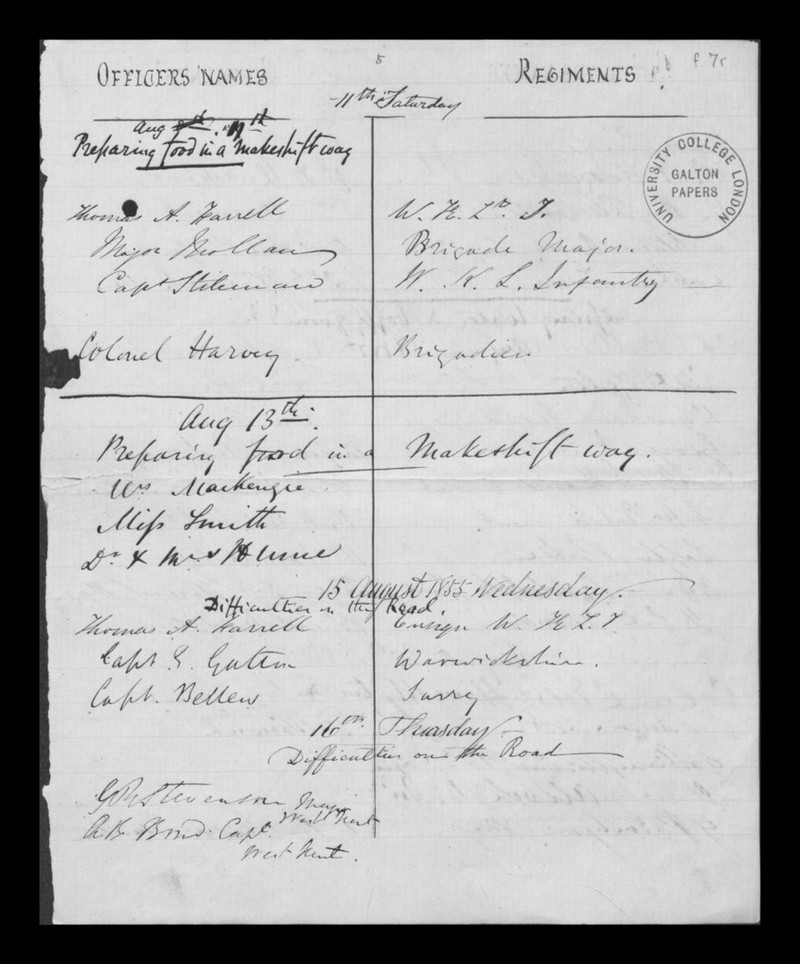 5
f. 7r
OFFICERS NAMES REGIMENTS
11th Saturday
Aug 11th
Preparing food in a Makeshift way
UNIVERSITY COLLEGE LONDON
GALTON
PAPERS
Thomas A. Farrell W. K. L. I.
Major Brigade Major.
Capt Stileman W. K. L. Infantry
Colonel Harvey. Brigadier
Aug 13th.
Preparing food in a Makeshift way.
Mackenzie
Miss Smith
Dr & Mrs Hume
15 August 1855 Wednesday.
Difficulties on the Road.
Thomas A. Farrell Ensign W. K. L. I
Capt E. Galton Warwickshire.
Capt. Bellew Surrey
16th Thursday
Difficulties on the Road
Stevenson Major
West Kent
Capt.
West Kent.